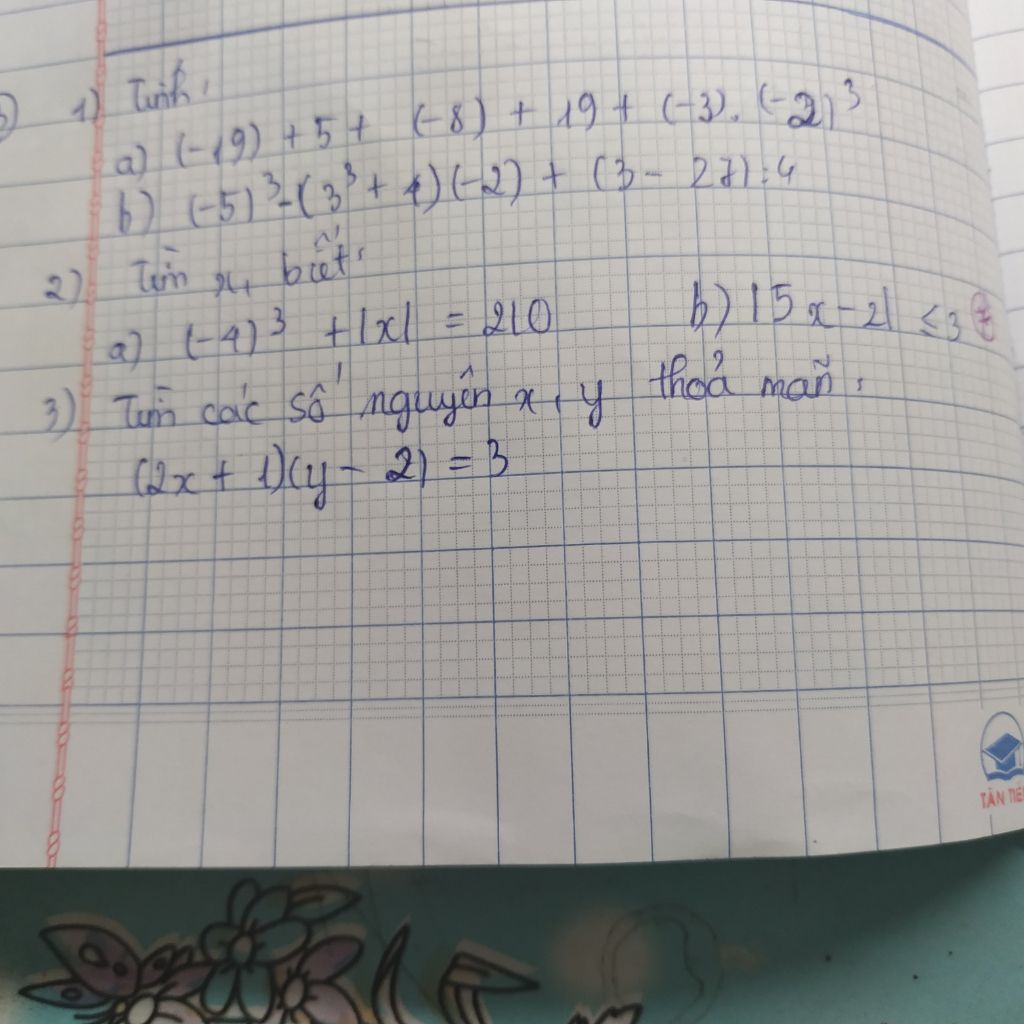 1) Tính:
a) (-19) + 5 + (-8) + 19 + (-3). (-2)³
b) (-5)³-(3³ + 1)(-2) + (3 - 27):4
2) Tìm x, biết:
a) (-4)³ + |x| = 210 b) |5x-2| ≤ 3
3) Tìm các số nguyên x, y thoả mãn:
(2x + 1)(y - 2) = 3